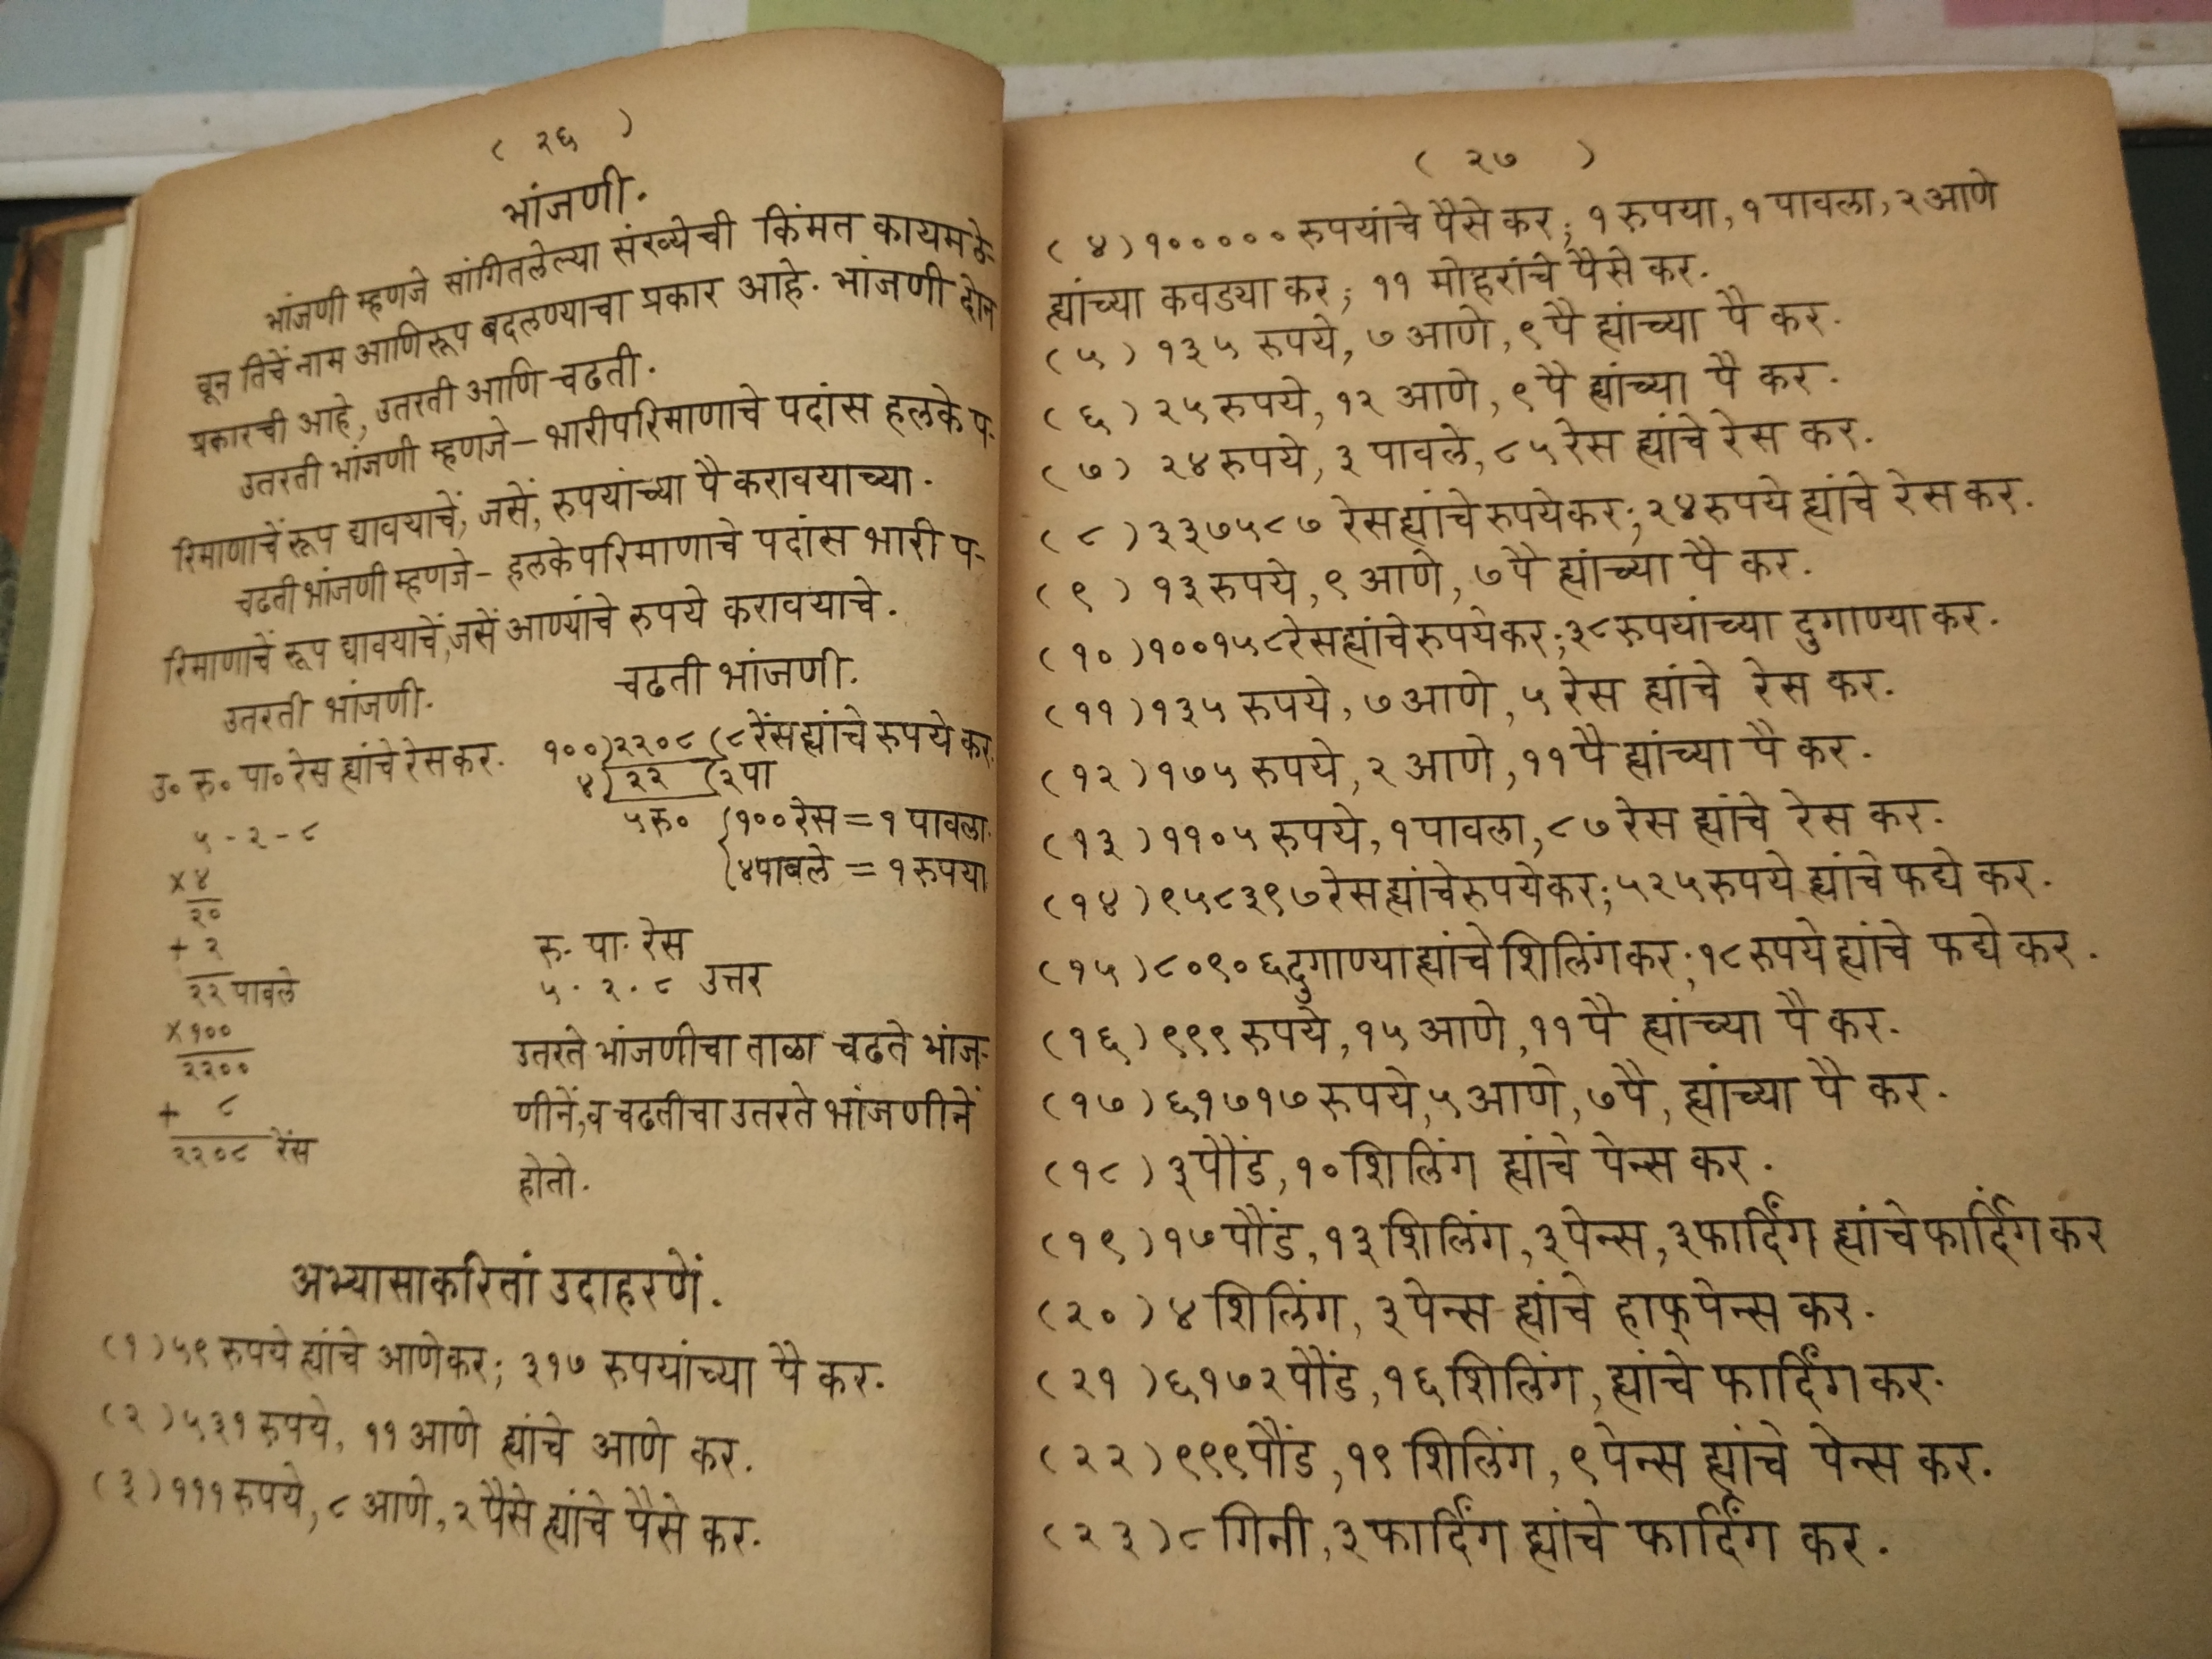 ( २६ )
भांजणी.
भांजणी म्हणजे सांगितलेल्या संख्येची किंमत कायम ठे-
वून तिचें नाम आणि रूप बदलण्याचा प्रकार आहे. भांजणी दोन
प्रकारची आहे, उतरती आणि चढती.
उतरती भांजणी म्हणजे – भारी परिमाणाचे पदांस हलके प-
रिमाणाचें रूप द्यावयाचें, जसें, रुपयांच्या पै करावयाच्या.
चढती भांजणी म्हणजे – हलके परिमाणाचे पदांस भारी प-
रिमाणाचें रूप द्यावयाचें, जसें आण्यांचे रुपये करावयाचे.
उतरती भांजणी.
उ० रु० पा० रेस ह्यांचे रेस कर.
५ - २ - ८
× ४
२०
+ २
२२ पावले
× १००
२२००
+ ८
२२०८ रेंस
चढती भांजणी.
१००)२२०८(८ रेंस ह्यांचे रुपये कर
४) २२ (२ पा
५ रु० {१०० रेस = १ पावला
{४ पावले = १ रुपया
रु. पा. रेस
५ . २ . ८ उत्तर
उतरते भांजणीचा ताळा चढते भांज-
णीनें, व चढतीचा उतरते भांजणीनें
होतो.
अभ्यासाकरितां उदाहरणें.
(१) ५९ रुपये ह्यांचे आणे कर; ३१७ रुपयांच्या पै कर.
(२) ५३१ रुपये, ११ आणे ह्यांचे आणे कर.
(३) १११ रुपये, ८ आणे, २ पैसे ह्यांचे पैसे कर.
( २७ )
(४) १००००० रुपयांचे पैसे कर; १ रुपया, १ पावला, २ आणे
ह्यांच्या कवड्या कर; ११ मोहरांचे पैसे कर.
(५) १३५ रुपये, ७ आणे, ९ पै ह्यांच्या पै कर.
(६) २५ रुपये, १२ आणे, ९ पै ह्यांच्या पै कर.
(७) २४ रुपये, ३ पावले, ८५ रेस ह्यांचे रेस कर.
(८) ३३७५८७ रेस ह्यांचे रुपये कर; २४ रुपये ह्यांचे रेस कर.
(९) १३ रुपये, ९ आणे, ७ पै ह्यांच्या पै कर.
(१०) १००१५८ रेस ह्यांचे रुपये कर; ३८ रुपयांच्या दुगाण्या कर.
(११) १३५ रुपये, ७ आणे, ५ रेस ह्यांचे रेस कर.
(१२) १७५ रुपये, २ आणे, ११ पै ह्यांच्या पै कर.
(१३) ११०५ रुपये, १ पावला, ८७ रेस ह्यांचे रेस कर.
(१४) ९५८३९७ रेस ह्यांचे रुपये कर; ५२५ रुपये ह्यांचे फद्ये कर.
(१५) ८०९०६ दुगाण्या ह्यांचे शिलिंग कर; १८ रुपये ह्यांचे फद्ये कर.
(१६) ९९९ रुपये, १५ आणे, ११ पै ह्यांच्या पै कर.
(१७) ६१७१७ रुपये, ५ आणे, ७ पै, ह्यांच्या पै कर.
(१८) ३ पौंड, १० शिलिंग ह्यांचे पेन्स कर.
(१९) १७ पौंड, १३ शिलिंग, ३ पेन्स, ३ फार्दिंग ह्यांचे फार्दिंग कर
(२०) ४ शिलिंग, ३ पेन्स ह्यांचे हाफ् पेन्स कर.
(२१) ६१७२ पौंड, १६ शिलिंग, ह्यांचे फार्दिंग कर.
(२२) ९९९ पौंड, १९ शिलिंग, ९ पेन्स ह्यांचे पेन्स कर.
(२३) ८ गिनी, ३ फार्दिंग ह्यांचे फार्दिंग कर.